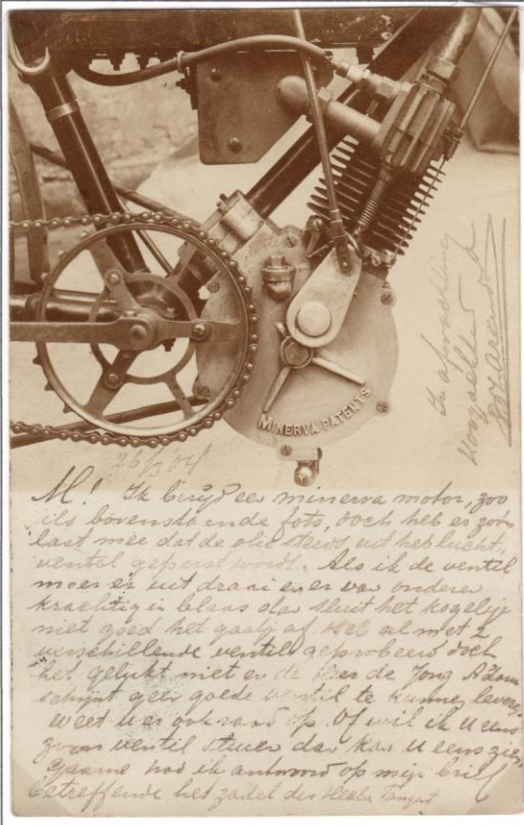 MINERVA PATENTS
In afwachting
Hoogachtend
26/3 04
M! Ik berijd een minerva motor, zoo
als bovenstaande foto, doch heb er zoo'n
last mee dat de olie steeds uit het lucht
ventiel geperst wordt. Als ik de ventiel
moer er uit draai en er van onderen
krachtig in blaas dan sluit het kogeltje
niet goed het gaatje af. Heb al met 2
verschillende ventill geprobeerd doch
het gelukt niet en de Heer de Jong A'dam
schijnt geen goede ventil te kunnen leveren
weet u er ook raad op. Of wil ik U eens
zoo'n ventil sturen dan kan U eens zien,
gaarne had ik antwoord op mijn brief
betreffende het zadel des Heeren